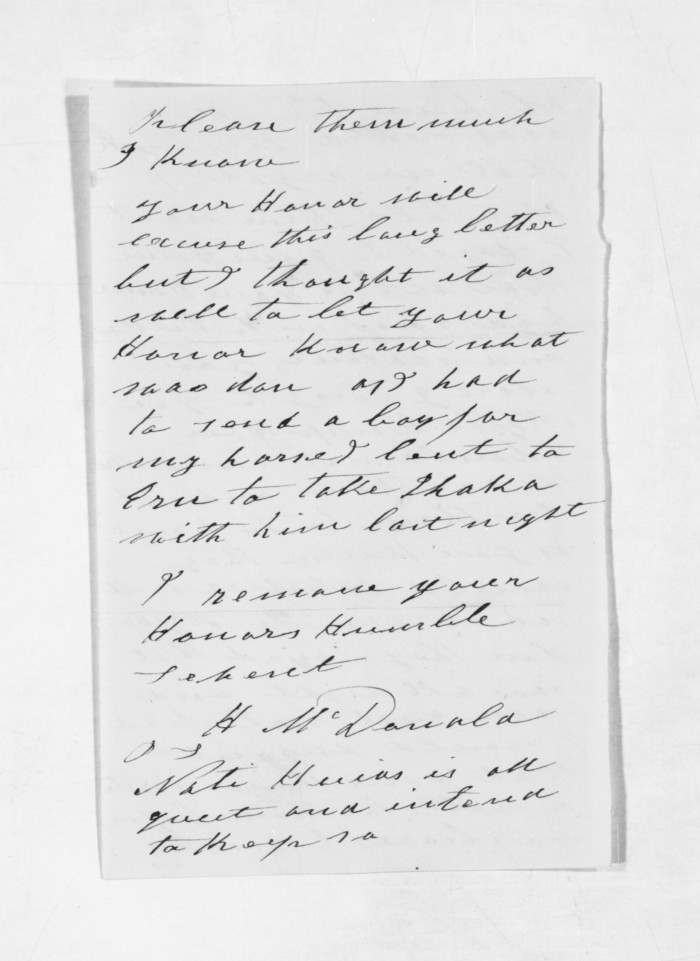 Please them much
I Know
your Honor will
excuse this long letter
but I thought it as
well to let your
Honor Know what
was don as I had
to send a boy for
my horse I lent to
Eru to take Ihaka
with him last night
I remane your
Honors Humble
Servent
H McDonald
P S
Nati Huias is all
quiet and intend
to Keep so